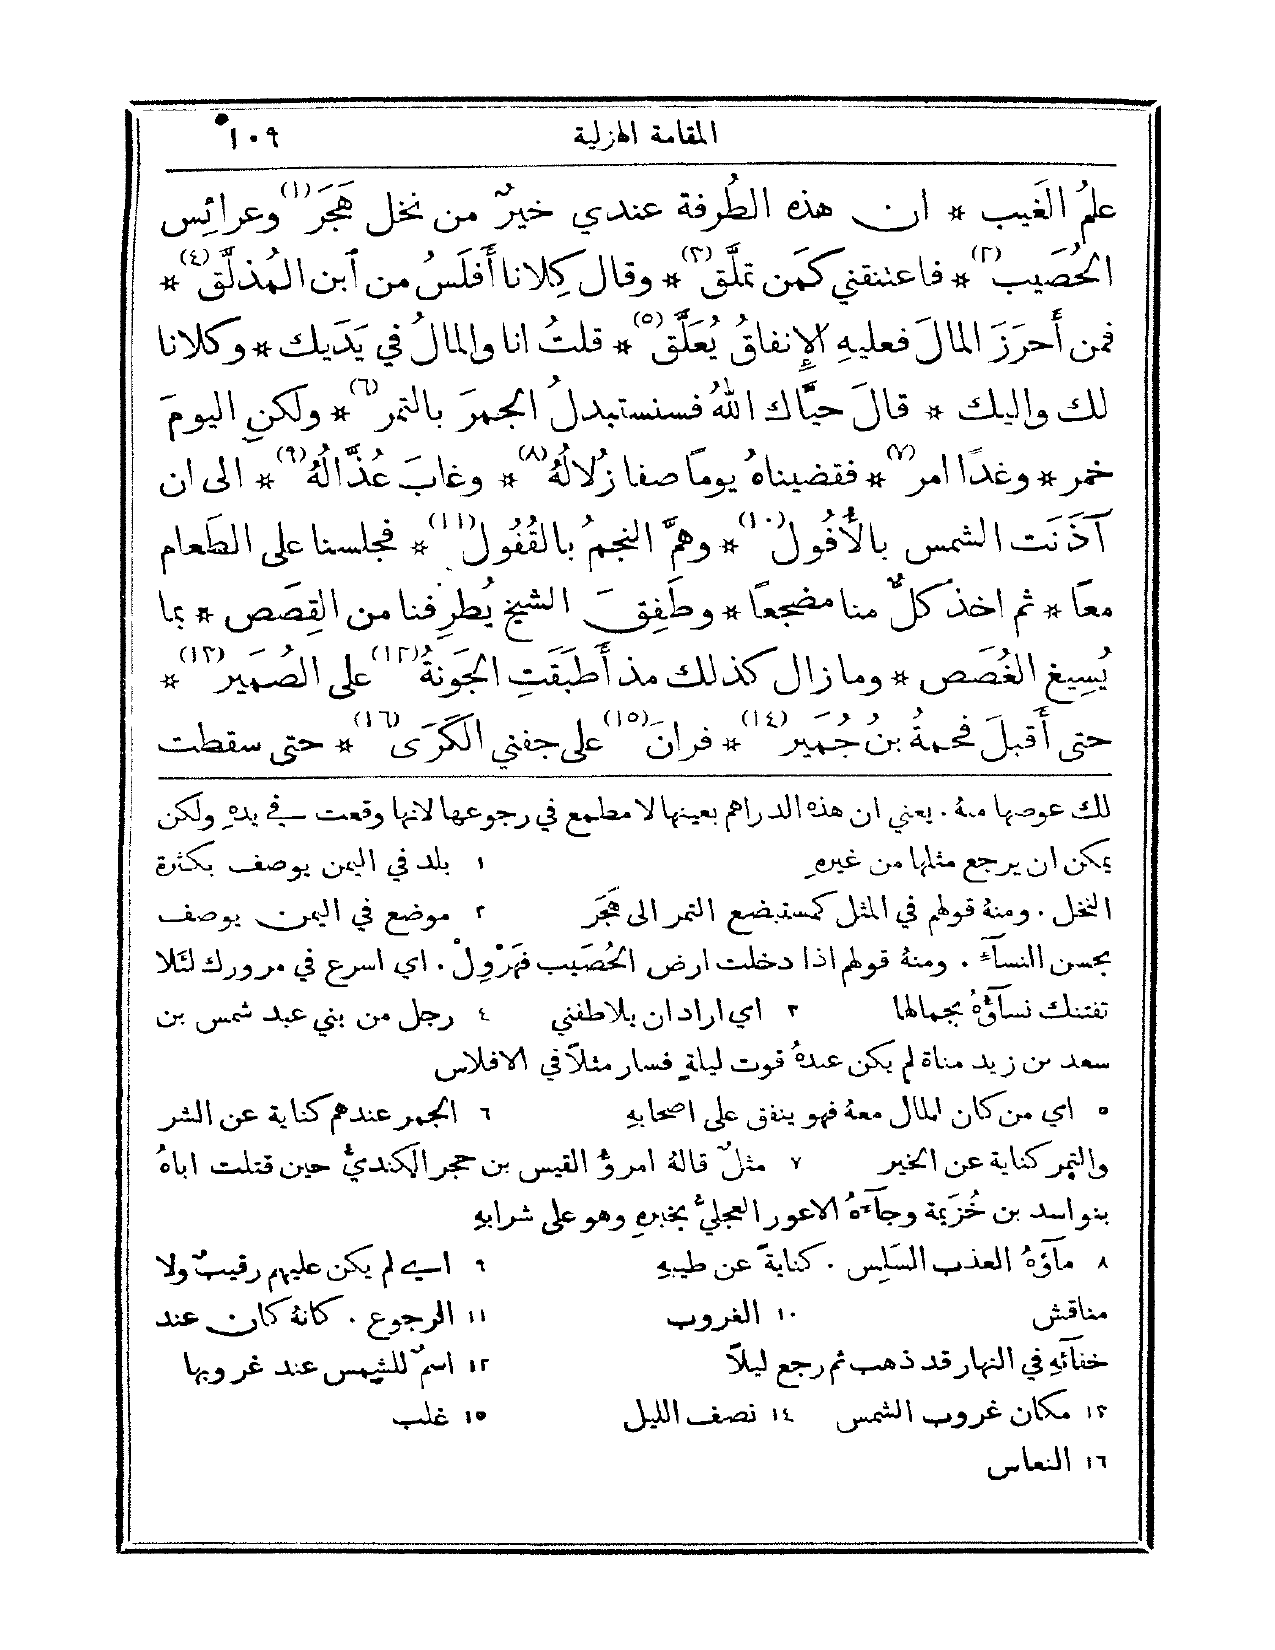 المقامة الهزلية
١٠٩
علمُ الغَيب * ان هذه الطُرفة عندي خيرٌ من نخل هَجَرَ (١) وعرائِس
الحُصَيب (٢) * فاعتنقني كَمَن تملَّق (٣) * وقال كِلانا أَفلَسُ من ٱبن المُذلَّق (٤) *
فمن أَحرَزَ المالَ فعليهِ الإِنفاقُ يُعَلَّق (٥) * قلتُ انا والمالُ في يَدَيك * وكلانا
لك واليك * قالَ حيَّاك اللهُ فسنستبدلُ الجمرَ بالتمر (٦) * ولكنِ اليومَ
خمر * وغدًا امر (٧) * فقضيناهُ يومًا صفا زُلالُهُ (٨) * وغابَ عُذَّالُهُ (٩) * الى ان
آذَنَت الشمس بالأُفول (١٠) * وهمَّ النجمُ بالقُفُول (١١) * فجلسنا على الطَعام
معًا * ثم اخذ كلٌّ منا مضجعًا * وطَفِقَ الشيخ يُطرِفنا من القِصَص * بما
يُسِيغ الغُصَص * وما زال كذلك مذ أَطبَقَتِ الجَونَةُ (١٢) على الصُمَير (١٣) *
حتى أَقبلَ فحمةُ بن جُمَير (١٤) * فران (١٥) على جفني الكَرَى (١٦) * حتى سقطت
لك عوضها منهُ . يعني ان هذه الدراهم بعينها لا مطمع في رجوعها لانها وقعت في يدهِ ولكن
يمكن ان يرجع مثلها من غيرهِ ١ بلد في اليمن يوصف بكثرة
النخل . ومنهُ قولهم في المثل كمستبضع التمر الى هَجَر ٢ موضع في اليمن يوصف
بحسن النسآء . ومنهُ قولهم اذا دخلت ارض الحُصَيب فهَرْوِلْ . اي اسرع في مرورك لئلا
تفتنك نسآؤهُ بجمالها ٣ اي اراد ان يلاطفني ٤ رجل من بني عبد شمس بن
سعد بن زيد مناة لم يكن عندهُ قوت ليلةٍ فسار مثلًا في الافلاس
٥ اي من كان المال معهُ فهو ينفق على اصحابهِ ٦ الجمر عندهم كناية عن الشر
والتمر كناية عن الخير ٧ مثلٌ قالهُ امرؤ القيس بن حجر الكنديُّ حين قتلت اباهُ
بنو اسد بن خُزَيمة وجآءَهُ الاعور العجليُّ بخبرهِ وهو على شرابهِ
٨ مآؤهُ العذب السَلِس . كنايةً عن طيبهِ ٩ اي لم يكن عليهم رقيبٌ ولا
مناقش ١٠ الغروب ١١ الرجوع . كانهُ كان عند
خفآئهِ في النهار قد ذهب ثم رجع ليلًا ١٢ اسمٌ للشمس عند غروبها
١٣ مكان غروب الشمس ١٤ نصف الليل ١٥ غلب
١٦ النعاس